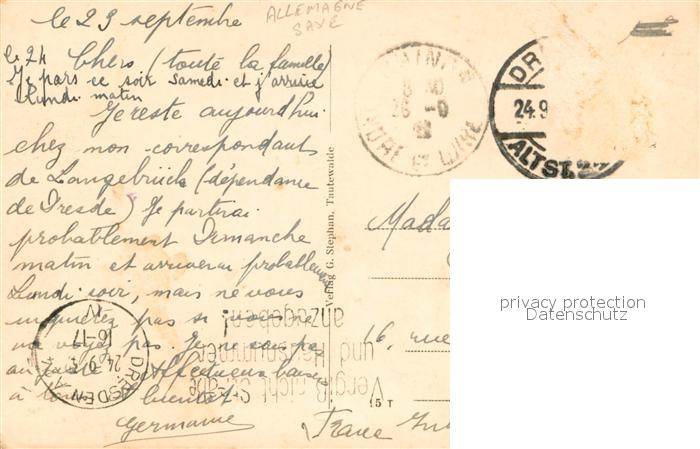 le 23 septembre
ALLEMAGNE
SAXE
le 24 Chers (toute la famille)
Je pars ce soir samedi et j'arrive
Lundi matin
Je reste aujourd'hui
chez mon correspondant
de Langebrück (dépendance
de Dresde) Je partirai
probablement Dimanche
matin et arriverai
Lundi soir, mais ne vous
inquiétez pas si
pas. Je ne
au juste. Affectueux baisers
à tous
Germaine
Verlag G. Stephan, Tautewalde
8
26 -9
EURE ET LOIRE
DR
24.9
ALTST. 24
16-17
24 9
DRESDEN
Vergiß nicht Straße
und Hausnummer
anzugeben!
Mada
16, rue
15 T
France
privacy protection
Datenschutz